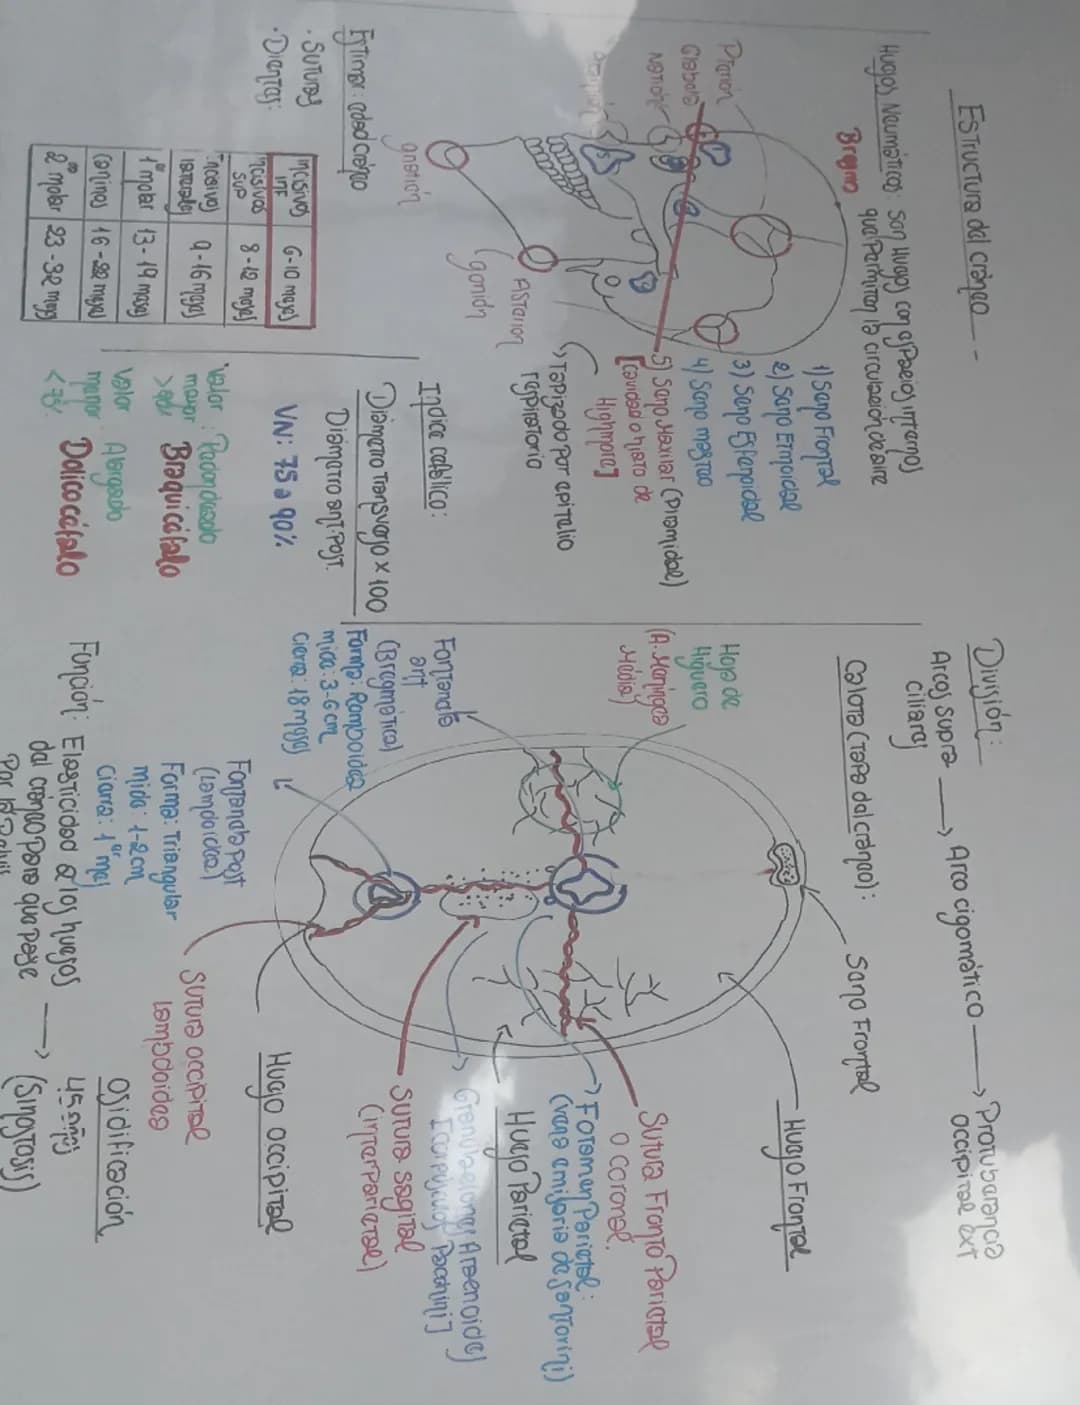 Estructura del cráneo
Huesos Neumáticos: Son Huesos con espacios internos
que Permiten la circulación de aire
Bregma
Pterion
Glabela
Nation
1) Seno Frontal
2) Seno Etmoidal
3) Seno Esfenoidal
4) Seno mastoo
5) Seno Maxilar (Piramidal)
[cavidad o hiato de
Highmore]
Tapizado por epitelio
respiratorio
Asterion
(gonion
gnation
Estimar: edad cráneo
· Suturas
· Dientes:
incisivos INF 6-10 meses
incisivos SUP 8-12 meses
Incisivos laterales 9-16 meses
1er molar 13-19 meses
Caninos 16-22 meses
2do molar 23-32 meses
Indice cefálico:
Diámetro Transverso x 100
Diámetro ant-Post.
VN: 75 a 90%
Valor mayor >90%: Redondeado
Braquicéfalo
Valor menor <75%: Alargado
Dolicocéfalo
División:
Arcos supra ciliares → Arco cigomático → Protuberancia occipital ext
Calota (Tapa del cráneo):
Seno Frontal
Hueso Frontal
Hoja de
Higuera
(A. Meníngea
Media)
Sutura Fronto Parietal
o coronal.
Foramen Parietal:
(vena emisaria de santorini)
Hueso Parietal
Granulaciones Aracnoides
[corpusculos Pacchini]
Sutura sagital
(interparietal)
Fontanela
ant
(Bregmática)
Forma: Romboidea
mide: 3-6 cm
cierra: 18 meses
Hueso occipital
Fontanela Post
(Lamdoidea)
Forma: Triangular
mide: 1-2 cm
Cierra: 1er mes
Sutura occipital
Lambdoidea
Función: Elasticidad a los huesos
del cráneo para que pase
Por la Pelvis
Osidificación
45 años
(Sinostosis)